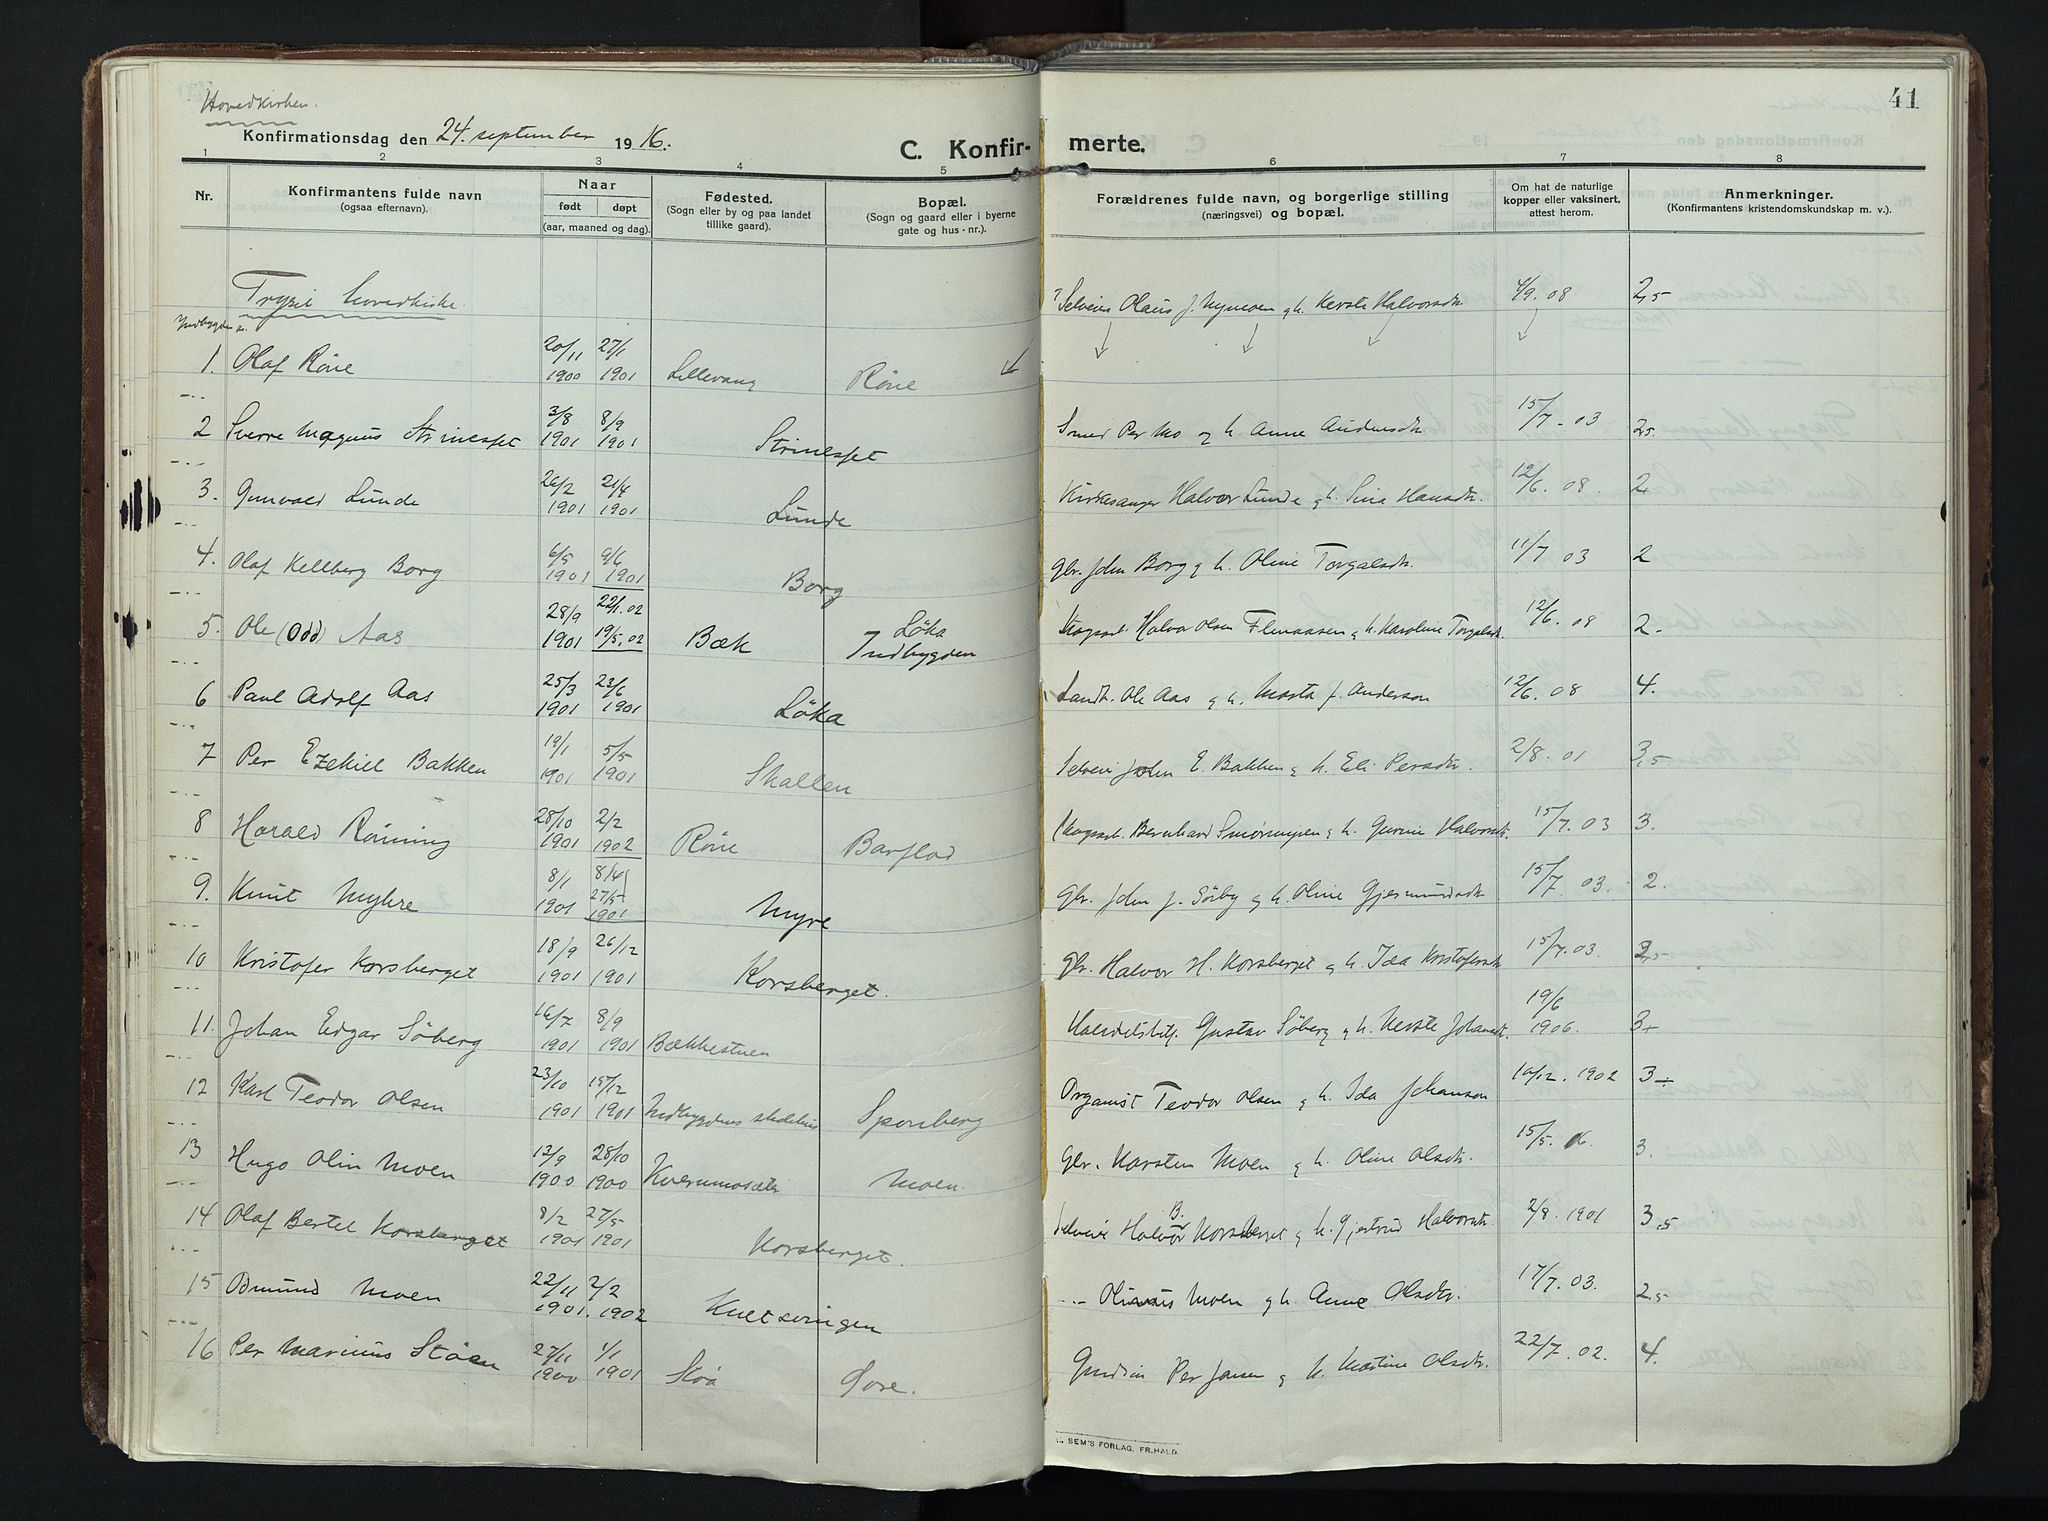 Hovedkirken.
Konfirmationsdag den 24. september 1916.
C. Konfirmerte.
41
1 2 3 4 5 6 7 8
Nr.
Konfirmantens fulde navn
(ogsaa efternavn).
Naar
født døpt
(aar, maaned og dag).
Fødested.
(Sogn eller by og paa landet
tillike gaard).
Bopæl.
(Sogn og gaard eller i byerne
gate og hus-nr.).
Forældrenes fulde navn, og borgerlige stilling
(næringsvei) og bopæl.
Om hat de naturlige
kopper eller vaksinert,
attest herom.
Anmerkninger.
(Konfirmantens kristendomskundskap m. v.).
Trysil hovedkirke.
Indbygden
Selveier Olaus J. Nymoen g h. Kersti Halvorsdtr. 4/9. 08 2,5
1. Olaf Röne 20/11 1900 27/1 1901 Lillevang Röne
2 Sverre Magnus Strinesset 3/8 1901 8/9 1901 Strinesset Smed Per Mo g h. Anne Andersdtr. 15/7 - 03 2,5.
3. Gunvald Lunde 26/2 1901 21/4 1901 Lunde Kirkesanger Halvor Lunde g h. Sina Hansdtr. 12/6. 08. 2
4. Olaf Kellberg Borg 6/5 1901 9/6 1901 Borg Gbr. John Borg g h. Oline Torgalsdtr. 11/7 03 2
5. Ole (Odd) Aas 28/9 1901 22/1. 02 19/5. 02 Bæk Löka Indbygden Skogsarb. Halvor Olsen Flenaasen g h. Karoline Torgalsdtr. 12/6. 08 2.
6 Paul Adolf Aas 25/3 1901 23/6 1901 Löka Landh. Ole Aas g h. Marta f. Anderson 12/6. 08 4.
7 Per Ezekiel Bakken 19/1 1901 5/5 1901 Skallen Selveier John E. Bakken g h. Eli Persdtr. 2/8. 01 3,5.
8 Harald Rönning 28/10 1901 2/2 1902 Röne Barflod Skogsarb. Bernhard Smörmyren g h. Gurine Halvorsdtr. 15/7. 03 3.
9. Knut Myhre 8/1 1901 8/4 27/5 1901 Myre Gbr. John J. Sörby g h. Oline Gjermundsdtr 15/7. 03. 2.
10 Kristofer Korsberget 18/9 1901 26/12 1901 Korsberget. Gbr. Halvor H. Korsberget g h. Ida Kristofersdtr 15/7. 03. 2,5
11. Johan Edgar Söberg 16/7 1901 8/9 1901 Bækkestuen Handelsbetj. Gustav Söberg g h. Kersti Johansdtr. 19/6 1906. 3÷
12 Karl Teodor Olsen 23/10 1901 15/12 1901 Indbygdens skolehus Sponberg Organist Teodor Olsen g h. Ida Johanson 10/12. 1902 3÷
13 Hugo Olin Moen 12/9 1900 28/10 1900 Kvernmosæter Moen. Gbr. Karsten Moen g h. Oline Olsdtr. 15/5. 16. 3.
14 Olaf Bertel Korsberget 8/2 1901 27/5 1901 Korsberget. Selveier Halvor B. Korsberget g h. Gjertrud Halvorsdtr. 2/8. 1901 3,5
15 Odmund Moen 22/11 1901. 2/2 1902 Knetsvingen -..- Olinius Moen g h. Anne Olsdtr. 17/7. 03. 2,5
16 Per Marinus Stöen 27/11 1900 4/1 1901 Stöa Gore. Per Jansen g h. Martine Olsdtr. 22/7. 02. 4.
SEM'S FORLAG, FR.HALD.